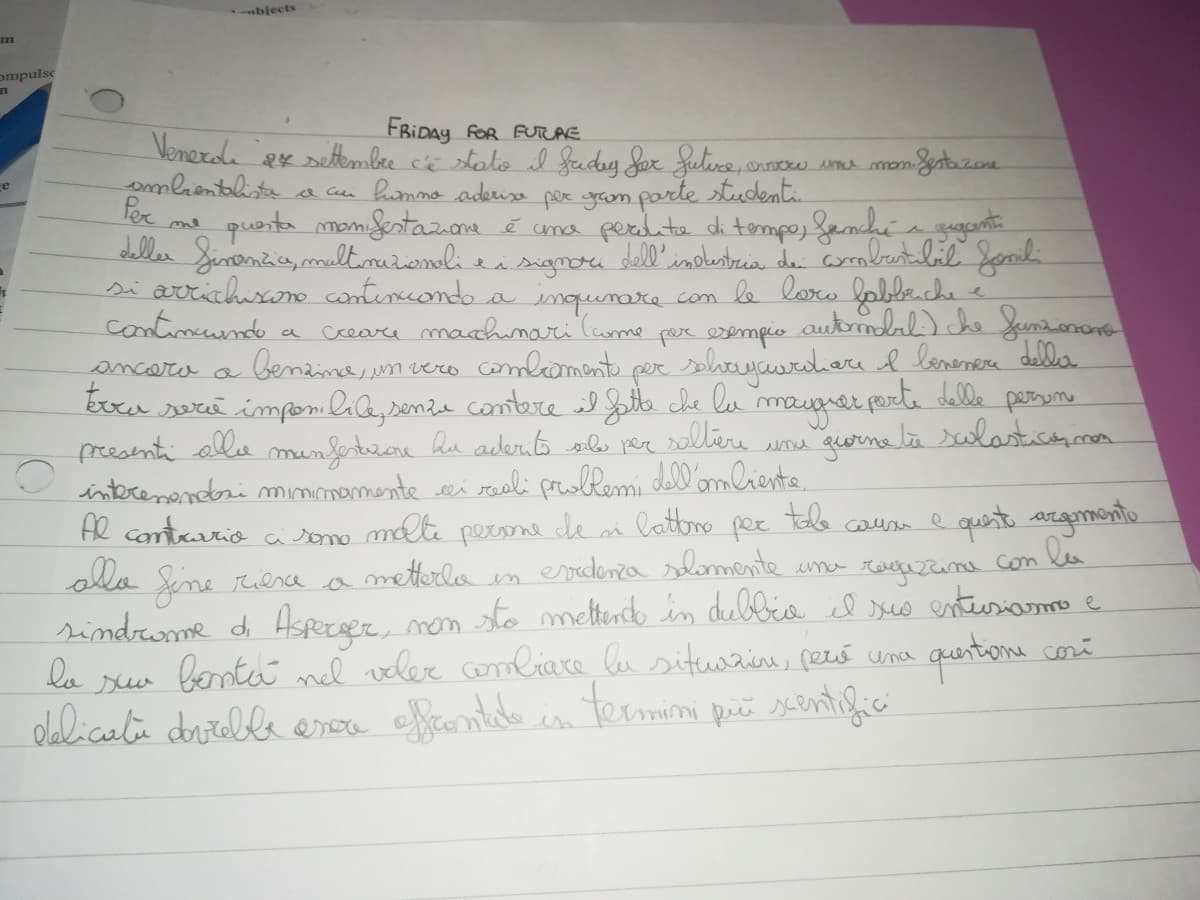 subjects
m
ompulso
n
e
FRIDAY FOR FUTURE
Venerdi 27 settembre c'è stato il friday for future, ovvero una manifestazione
ambientalista a cui hanno aderiso per gran parte studenti.
Per me questa manifestazione è una perdita di tempo, finchè i giganti
della finanzia, multinazionali e i signori dell'industria dei combustibili fossili
si arrichiscono continuando a inquinare con le loro fabbriche e
continuando a creare macchinari (come per esempio automobili) che funzionano
ancora a benzina, un vero cambiamento per salvaguardiare il benessere della
terra sarà impossibile, senza contare il fatto che la maggior parte delle persone
presenti alla manifestazione ha aderito solo per saltare una giornata scolastica, non
interessandosi minimamente ai reali problemi dell'ambiente.
Al contrario ci sono molte persone che si battono per tale causa e questo argomento
alla fine riesce a metterla in evidenza solamente una ragazzina con la
sindrome di Asperger, non sto mettendo in dubbio il suo entusiasmo e
la sua bontà nel voler cambiare la situazione, però una questione così
delicata dovrebbe essere affrontata in termini più scentifici